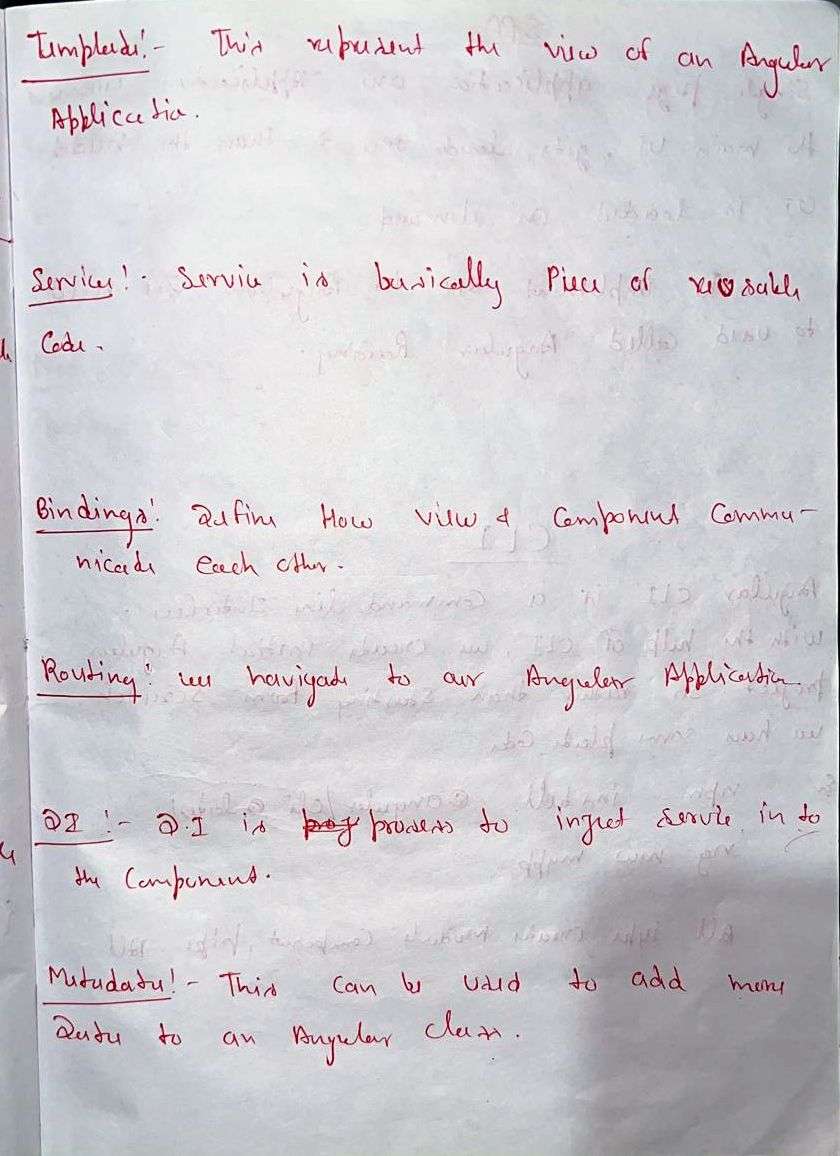 Template:- This represent the view of an Angular
Application.
Services:- Service is basically Piece of reusable
Code.
Bindings: Define How view & Component Commu-
nicate each other.
Routing: we navigate to our Angular Application
DI :- D.I is process to inject service in to
the Component.
Metadata:- This can be used to add more
Data to an Angular class.